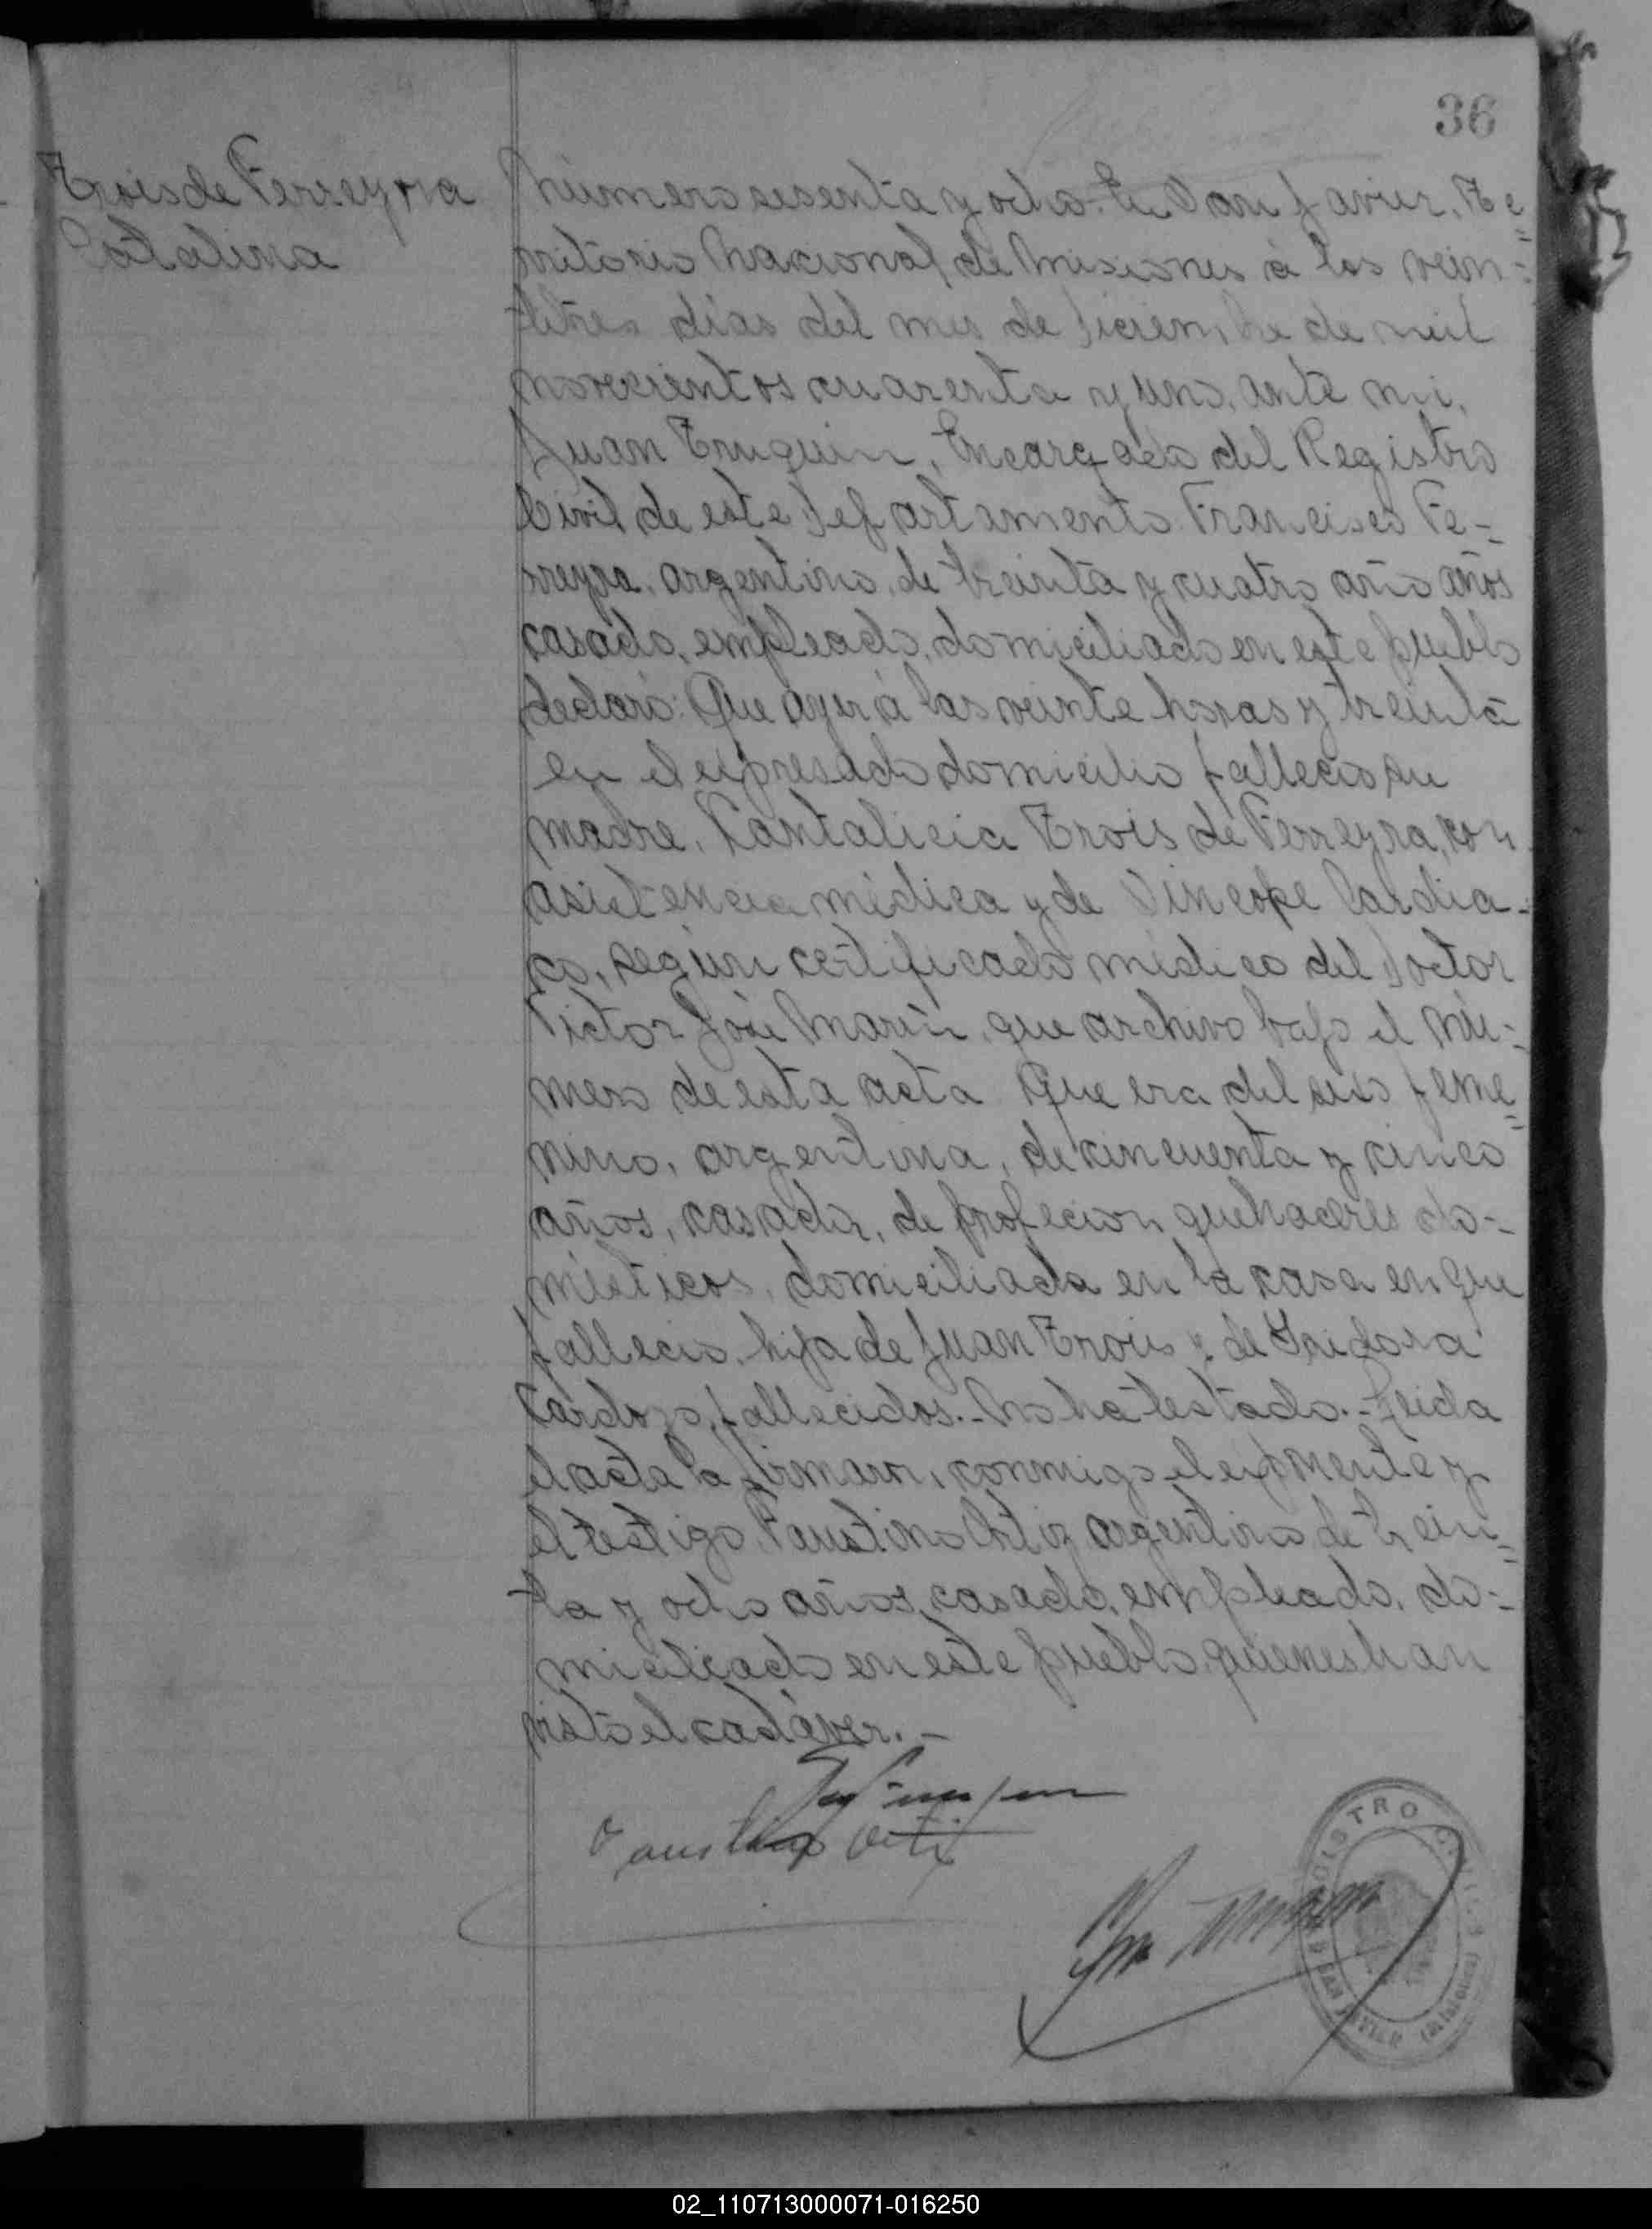 36
Trois de Ferreyra
Catalina
Número sesenta y ocho. En San Javier, Te=
rritorio Nacional de Misiones á los vein=
titres días del mes de Diciembre de mil
novecientos cuarenta y uno, ante mi,
Juan Truquin, Encargado del Registro
Civil de este Departamento Francisco Fe-
rreyra, argentino, de treinta y cuatro año años
casado, empleado, domiciliado en este pueblo
declaró: Que ayer á las veinte horas y treinta
en el expresado domicilio fallecio su
madre, Cantalicia Trois de Ferreyra, con
asistencia médica y de Sincope Cardia-
co, según certificado médico del Doctor
Victor José Marín, que archivo bajo el Nú-
mero de esta acta. Que era del sexo feme=
nino, argentina, de cincuenta y cinco
años, casada, de profecion quehaceres do-
mésticos, domiciliada en la casa en que
fallecio, hija de Juan Trois y de Ysidora
Cardozo, fallecidos.- No ha testado.- Leida
el acta la firman, conmigo el exponente y
el testigo Faustino Ortiz argentino de trein=
ta y ocho años, casado, empleado, do-
miciliado en este pueblo, quienes han
visto el cadáver.-
Faustino Ortiz
REGISTRO CIVIL
SAN JAVIER (Misiones)
02_110713000071-016250